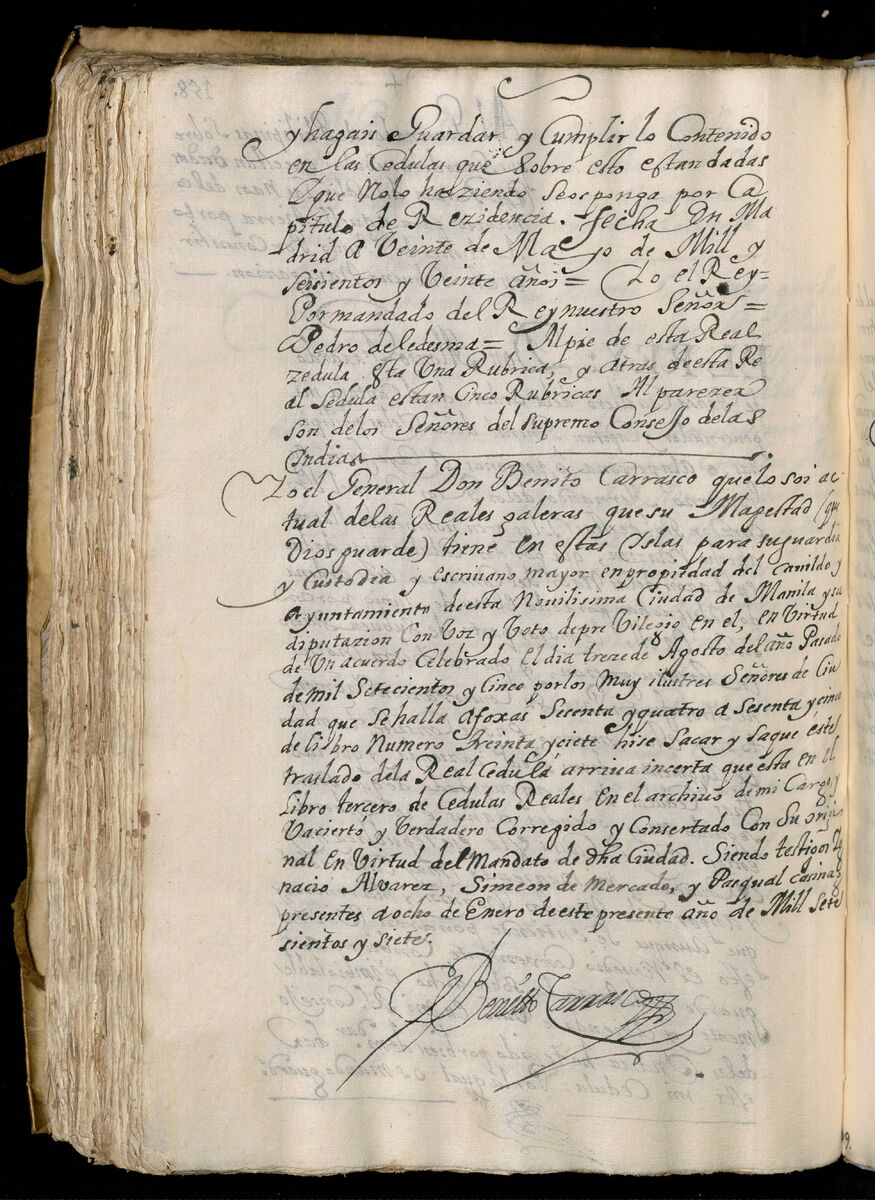 y hagais Guardar y Cumplir lo Contenido
en las Cedulas que Sobre esto estan dadas
Y que No lo haziendo Seos ponga por Ca
pitulo de Rezidencia. fecha En Ma
drid A Veinte de Mayo de Mill y
seisientos y Veinte años = Yo el Rey =
Por mandado del Rey nuestro Señor =
Pedro de ledesma = Al pie de esta Real
zedula esta Una Rubrica, y atras de esta Re
al Sedula estan Cinco Rubricas Al parezer
son de los Señores del supremo Consejo de las
Indias
Yo el General Don Benito Carrasco que lo soi ac
tual de las Reales galeras que su Magestad (que
Dios guarde) tiene en estas Islas para su guardia
y Custodia y escriuano mayor en propiedad del Cauildo y
ayuntamiento de esta Nouilisima Ciudad de Manila y su
diputazion Con Voz y Voto de preVilegio en el, en Virtud
de Un acuerdo Celebrado el dia treze de Agosto del año Pasado
de mil Setecientos y Cinco por los Muy ilustres Señores de Ciu
dad que se halla a foxas Sesenta y quatro a Sesenta y cinco
de libro Numero treinta y ciete hise Sacar y saque este
traslado de la Real Cedula arriua incerta que esta en el
Libro tercero de Cedulas Reales en el archiuo de mi Cargo y
Va cierto y Verdadero Corregido y Consertado Con Su origi
nal en Virtud del Mandato de dha Ciudad. Siendo testigos Yg
nacio Alvarez, Simeon de Mercado, y Pasqual casinas
presentes a ocho de Enero de este presente año de Mill Sete
sientos y siete.
Benito Carrasco